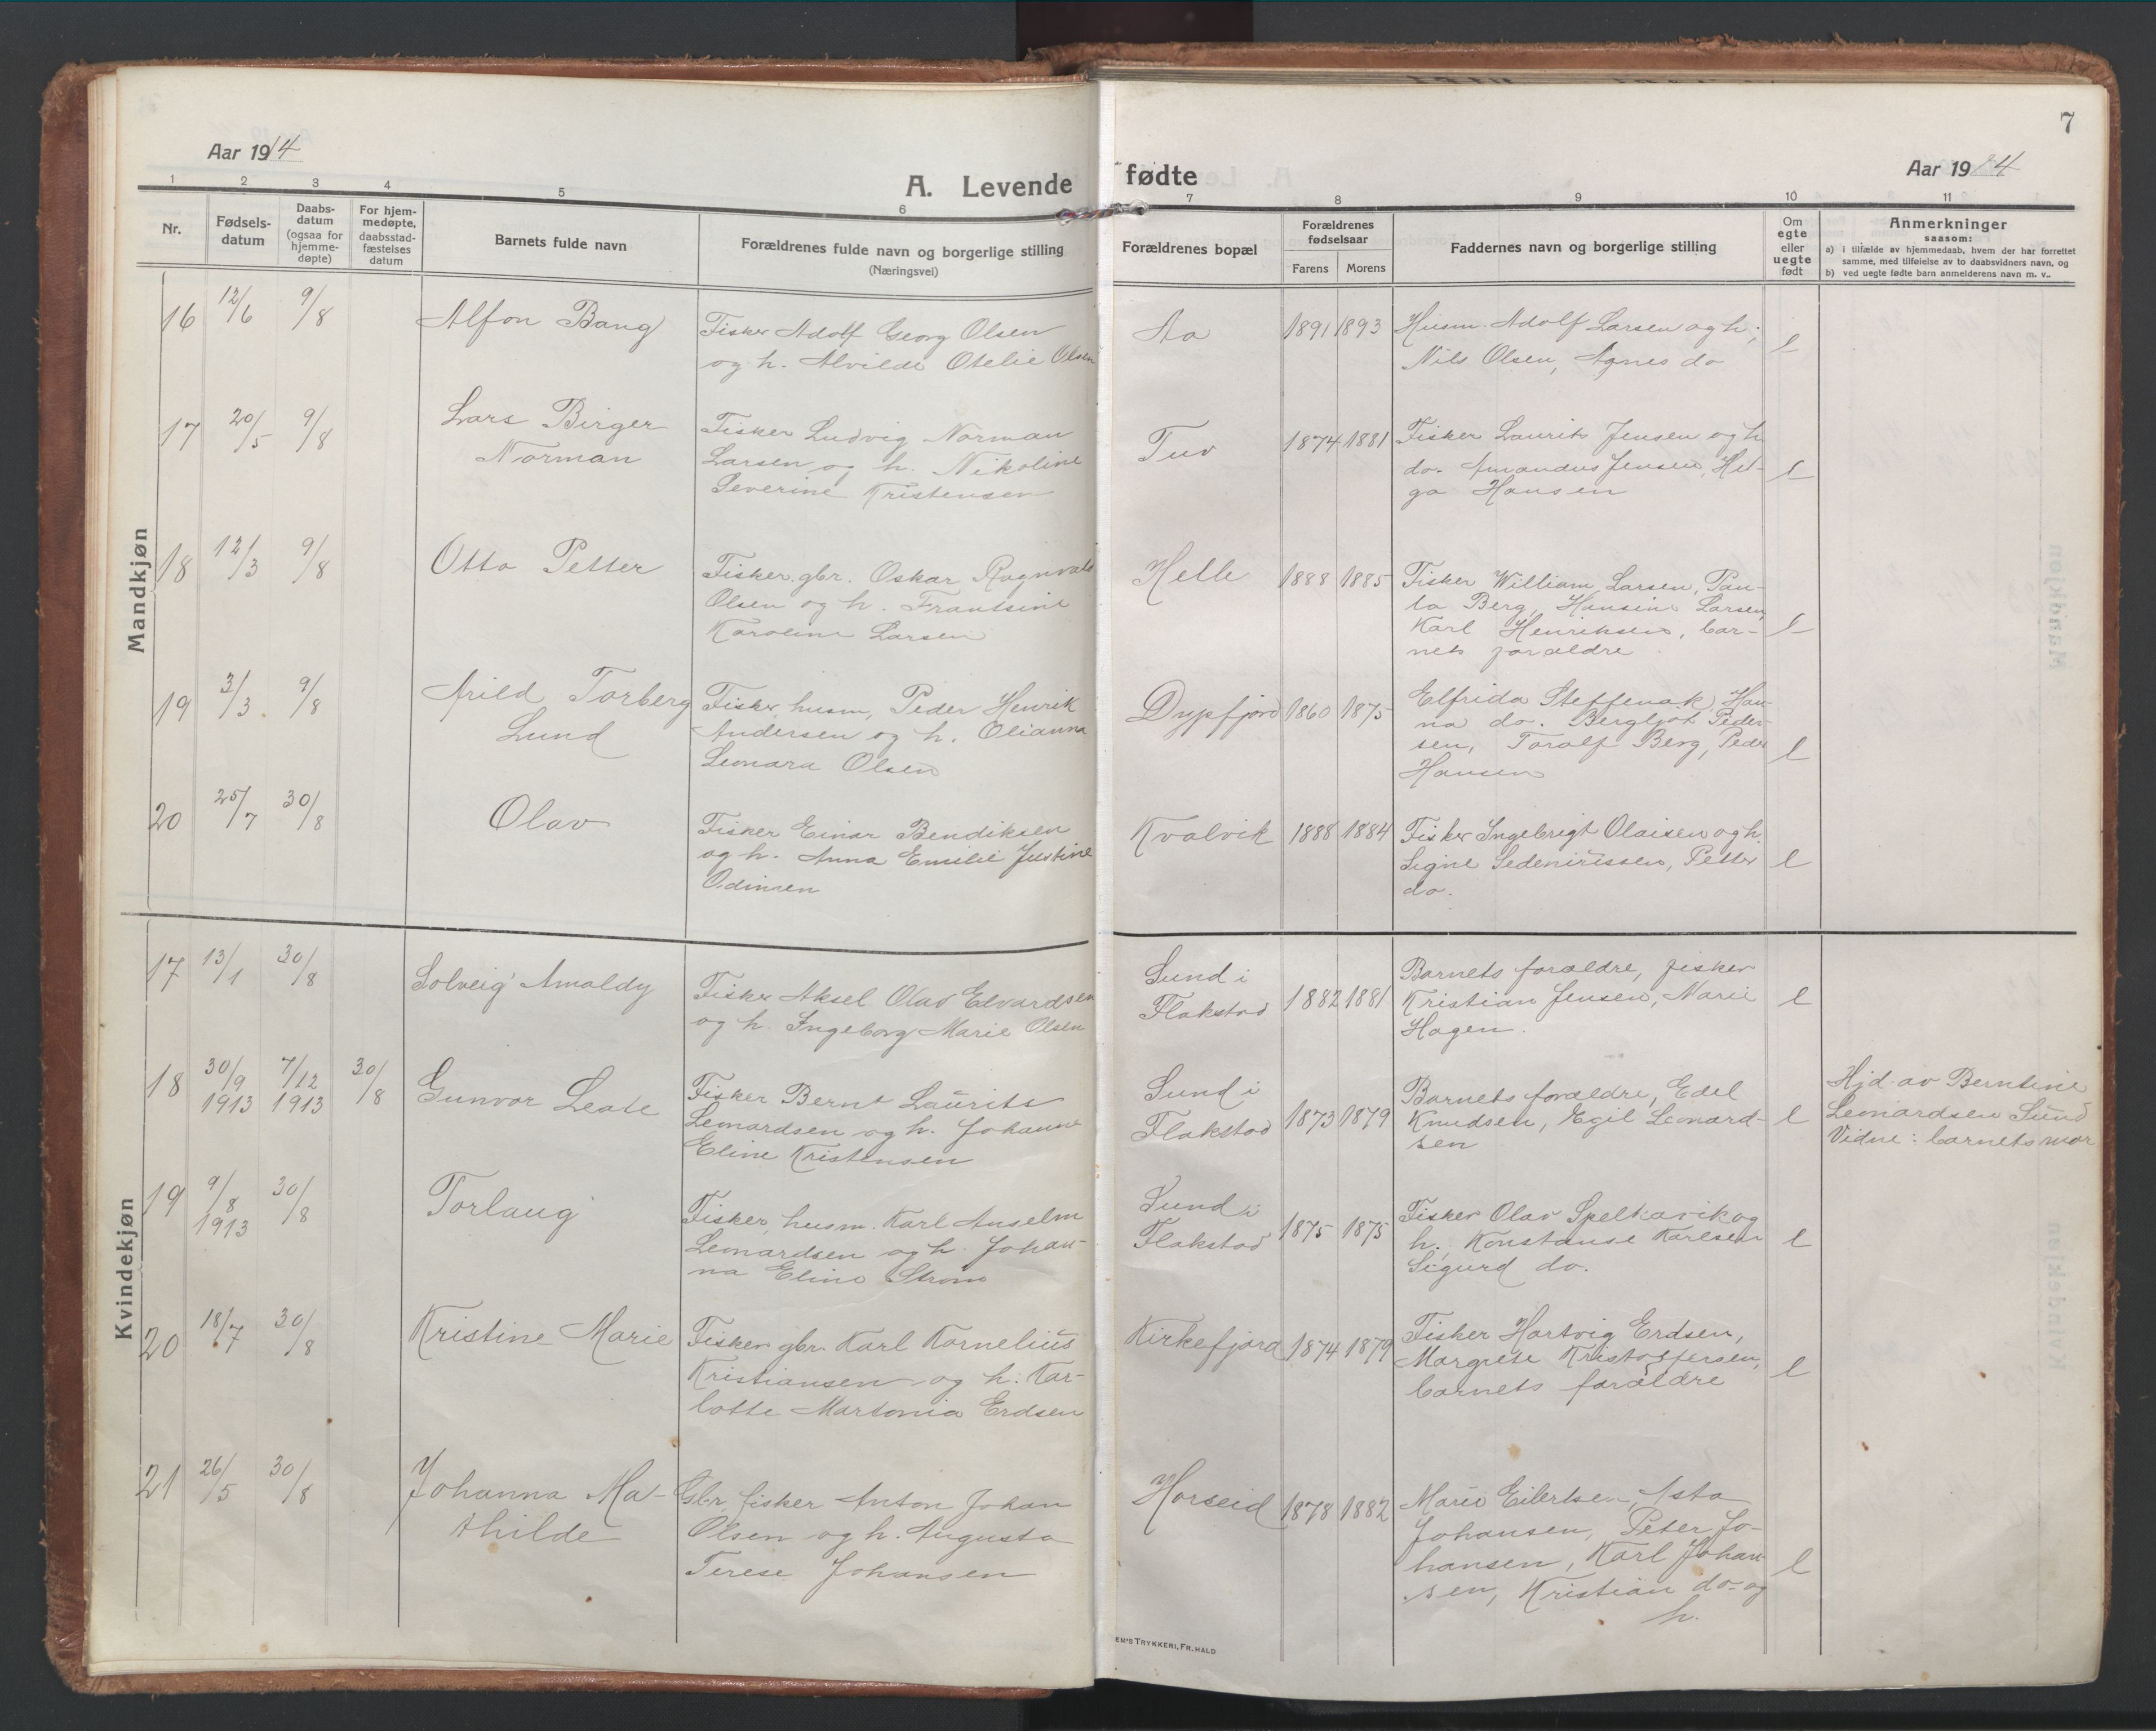 7
Aar 1914
A. Levende fødte
Aar 1914
1 2 3 4 5 6 7 8 9 10 11
Nr.
Fødsels-
datum
Daabs-
datum
(ogsaa for
hjemme-
døpte)
For hjem-
medøpte,
daabsstad-
fæstelses
datum
Barnets fulde navn
Forældrenes fulde navn og borgerlige stilling
(Næringsvei)
Forældrenes bopæl
Forældrenes
fødselsaar
Farens Morens
Faddernes navn og borgerlige stilling
Om
egte
eller
uegte
født
Anmerkninger
saasom:
a) i tilfælde av hjemmedaab, hvem der har forrettet
samme, med tilføielse av to daabsvidners navn, og
b) ved uegte fødte barn anmelderens navn m. v..
Mandkjøn
16 12/6 9/8 Alfon Bang
Fisker Adolf Georg Olsen
og h. Alvilde Otelie Olsen
Aa 1891 1893
Husm. Adolf Larsen og h.;
Nils Olsen, Agnes do
l
17 20/5 9/8 Lars Birger
Norman
Fisker Ludvig Norman
Larsen og h. Nikoline
Severine Kristensen
Tuv 1874 1881
Fisker Laurits Jensen og h
do. Amandus Jensen, Hel-
ga Hansen
l
18 12/3 9/8 Otto Petter
Fisker, gbr. Oskar Ragnvald
Olsen og h. Frantsine
Karoline Larsen
Helle 1888 1885
Fisker William Larsen, Pau-
la Berg, Hansine Larsen,
Karl Henriksen, bar-
nets forældre
l
19 3/3 9/8 Arild Torberg
Lund
Fisker, husm, Peder Henrik
Andersen og h. Olianna
Leonara Olsen
Dypfjord 1860 1875
Elfrida Steffenak, Han-
na do. Bergljot Peder-
sen, Toralf Berg, Peder
Hansen
l
20 25/7 30/8 Olav
Fisker Einar Bendiksen
og h. Anna Emilie Justine
Odinsen
Kvalvik 1888 1884
Fisker Ingebrigt Olaisen og h.
Signe, Petter
do.
l
Kvindekjøn
17 13/1 30/8 Solveig Amaldy
Fisker Aksel Olav Edvardsen
og h. Ingeborg Marie Olsen
Sund i
Flakstad
1882 1881
Barnets forældre, fisker
Kristian Jensen, Marie
Hagen.
l
18 30/9 1913 7/12 1913 30/8 Gunvor Leate
Fisker Bernt Laurits
Leonardsen og h. Johanne
Eline Kristensen
Sund i
Flakstad
1873 1879
Barnets forældre, Edel
Knudsen, Egil Leonard-
sen
l
Hjd. av Berntine
Leonardsen Sund
Vidne: barnets mor
19 9/8 1913 30/8 Torlaug
Fisker, husm. Karl Anselm
Leonardsen og h. Johan-
na Eline Strøm
Sund i
Flakstad
1875 1875
Fisker Olav Spelkavik og
h., Konstanse Karlsen
Sigurd do.
l
20 18/7 30/8 Kristine Marie
Fisker, gbr. Karl Kornelius
Kristiansen og h. Kar-
lotte Martonia Erdsen
Kirkefjord 1874 1879
Fisker Hartvig Erdsen,
Margrete Kristoffersen,
barnets forældre
l
21 26/5 30/8 Johanna Ma-
thilde
Gbr, fisker Anton Johan
Olsen og h. Augusta
Terese Johansen
Horseid 1878 1882
Marie Eilertsen, Asta
Johansen, Peter Jo-
hansen, Karl Johan-
sen, Kristian do. og
h.
l
EM'S TRYKKERI, FR. HALD